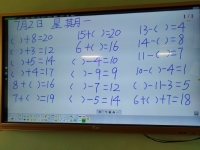 7月2日 星期一
( )+8=20 15+( )=20 13-( )=4
( )+3=12 6+( )=16 14-( )=8
( )+5=14 ( )-4=10 11-( )=7
( )+4=17 ( )-9=9 10-( )-4=1
8+( )=16 ( )-7=12 ( )-11-3=5
7+( )=19 ( )-5=14 6+( )+7=18